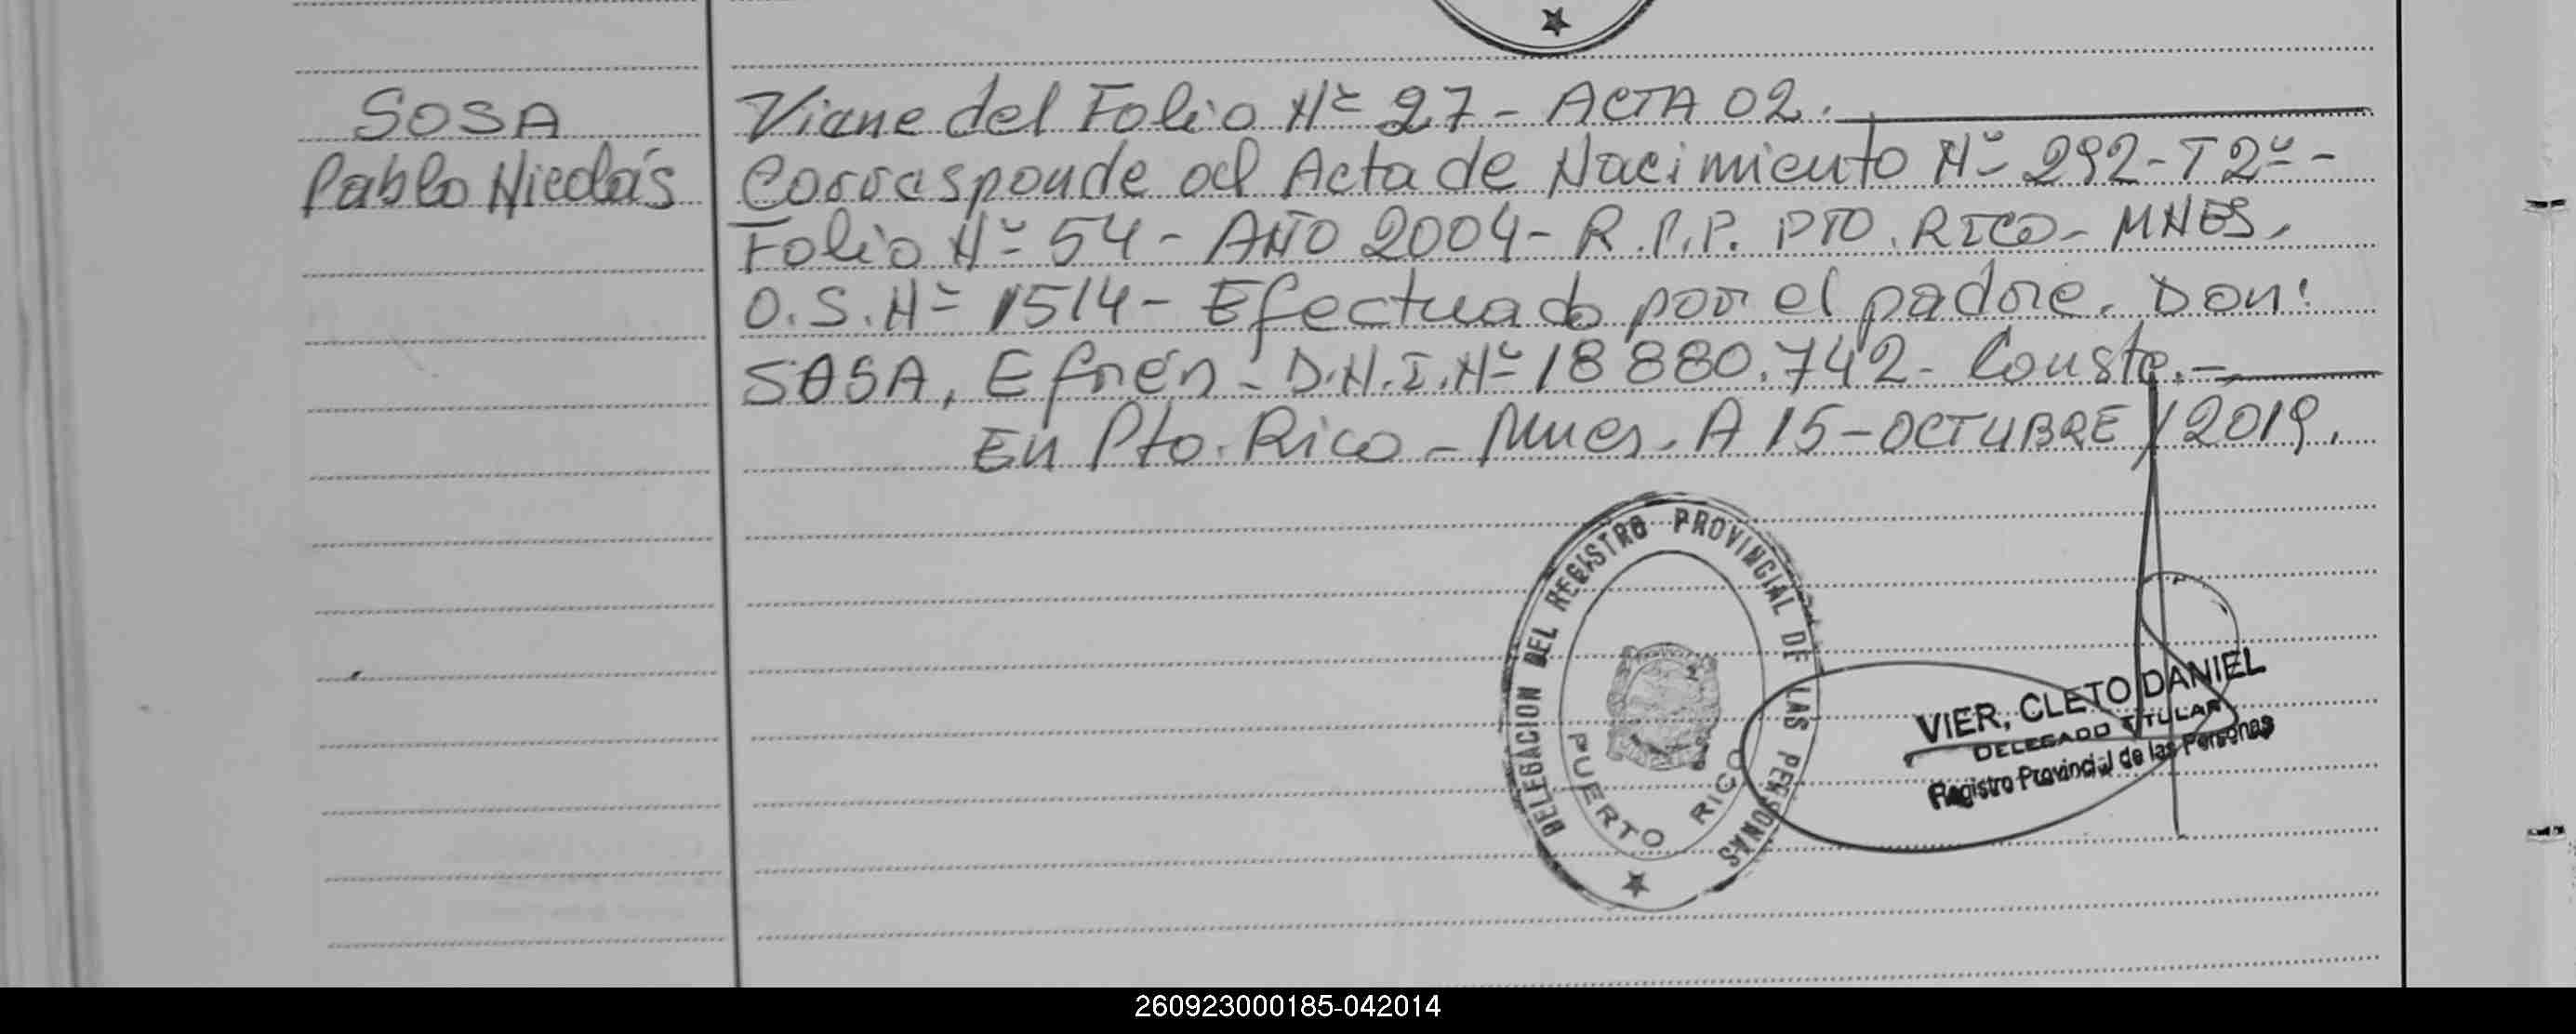 SOSA
Pablo Nicolás
Viene del Folio Nº 27 - ACTA 02.
Corresponde al Acta de Nacimiento Nº 292 - T 2º -
Folio Nº 54 - AÑO 2004 - R.P.P. PTO. RICO - MNES.
O.S. Nº 1514 - Efectuado por el padre. Don:
SOSA, Efrén - D.N.I. Nº 18 880.742 - Conste. -
En Pto. Rico - Mnes. A 15 - OCTUBRE / 2019.
DELEGACION DEL REGISTRO PROVINCIAL DE LAS PERSONAS
PUERTO RICO
VIER, CLETO DANIEL
DELEGADO TITULAR
Registro Provincial de las Personas
260923000185-042014